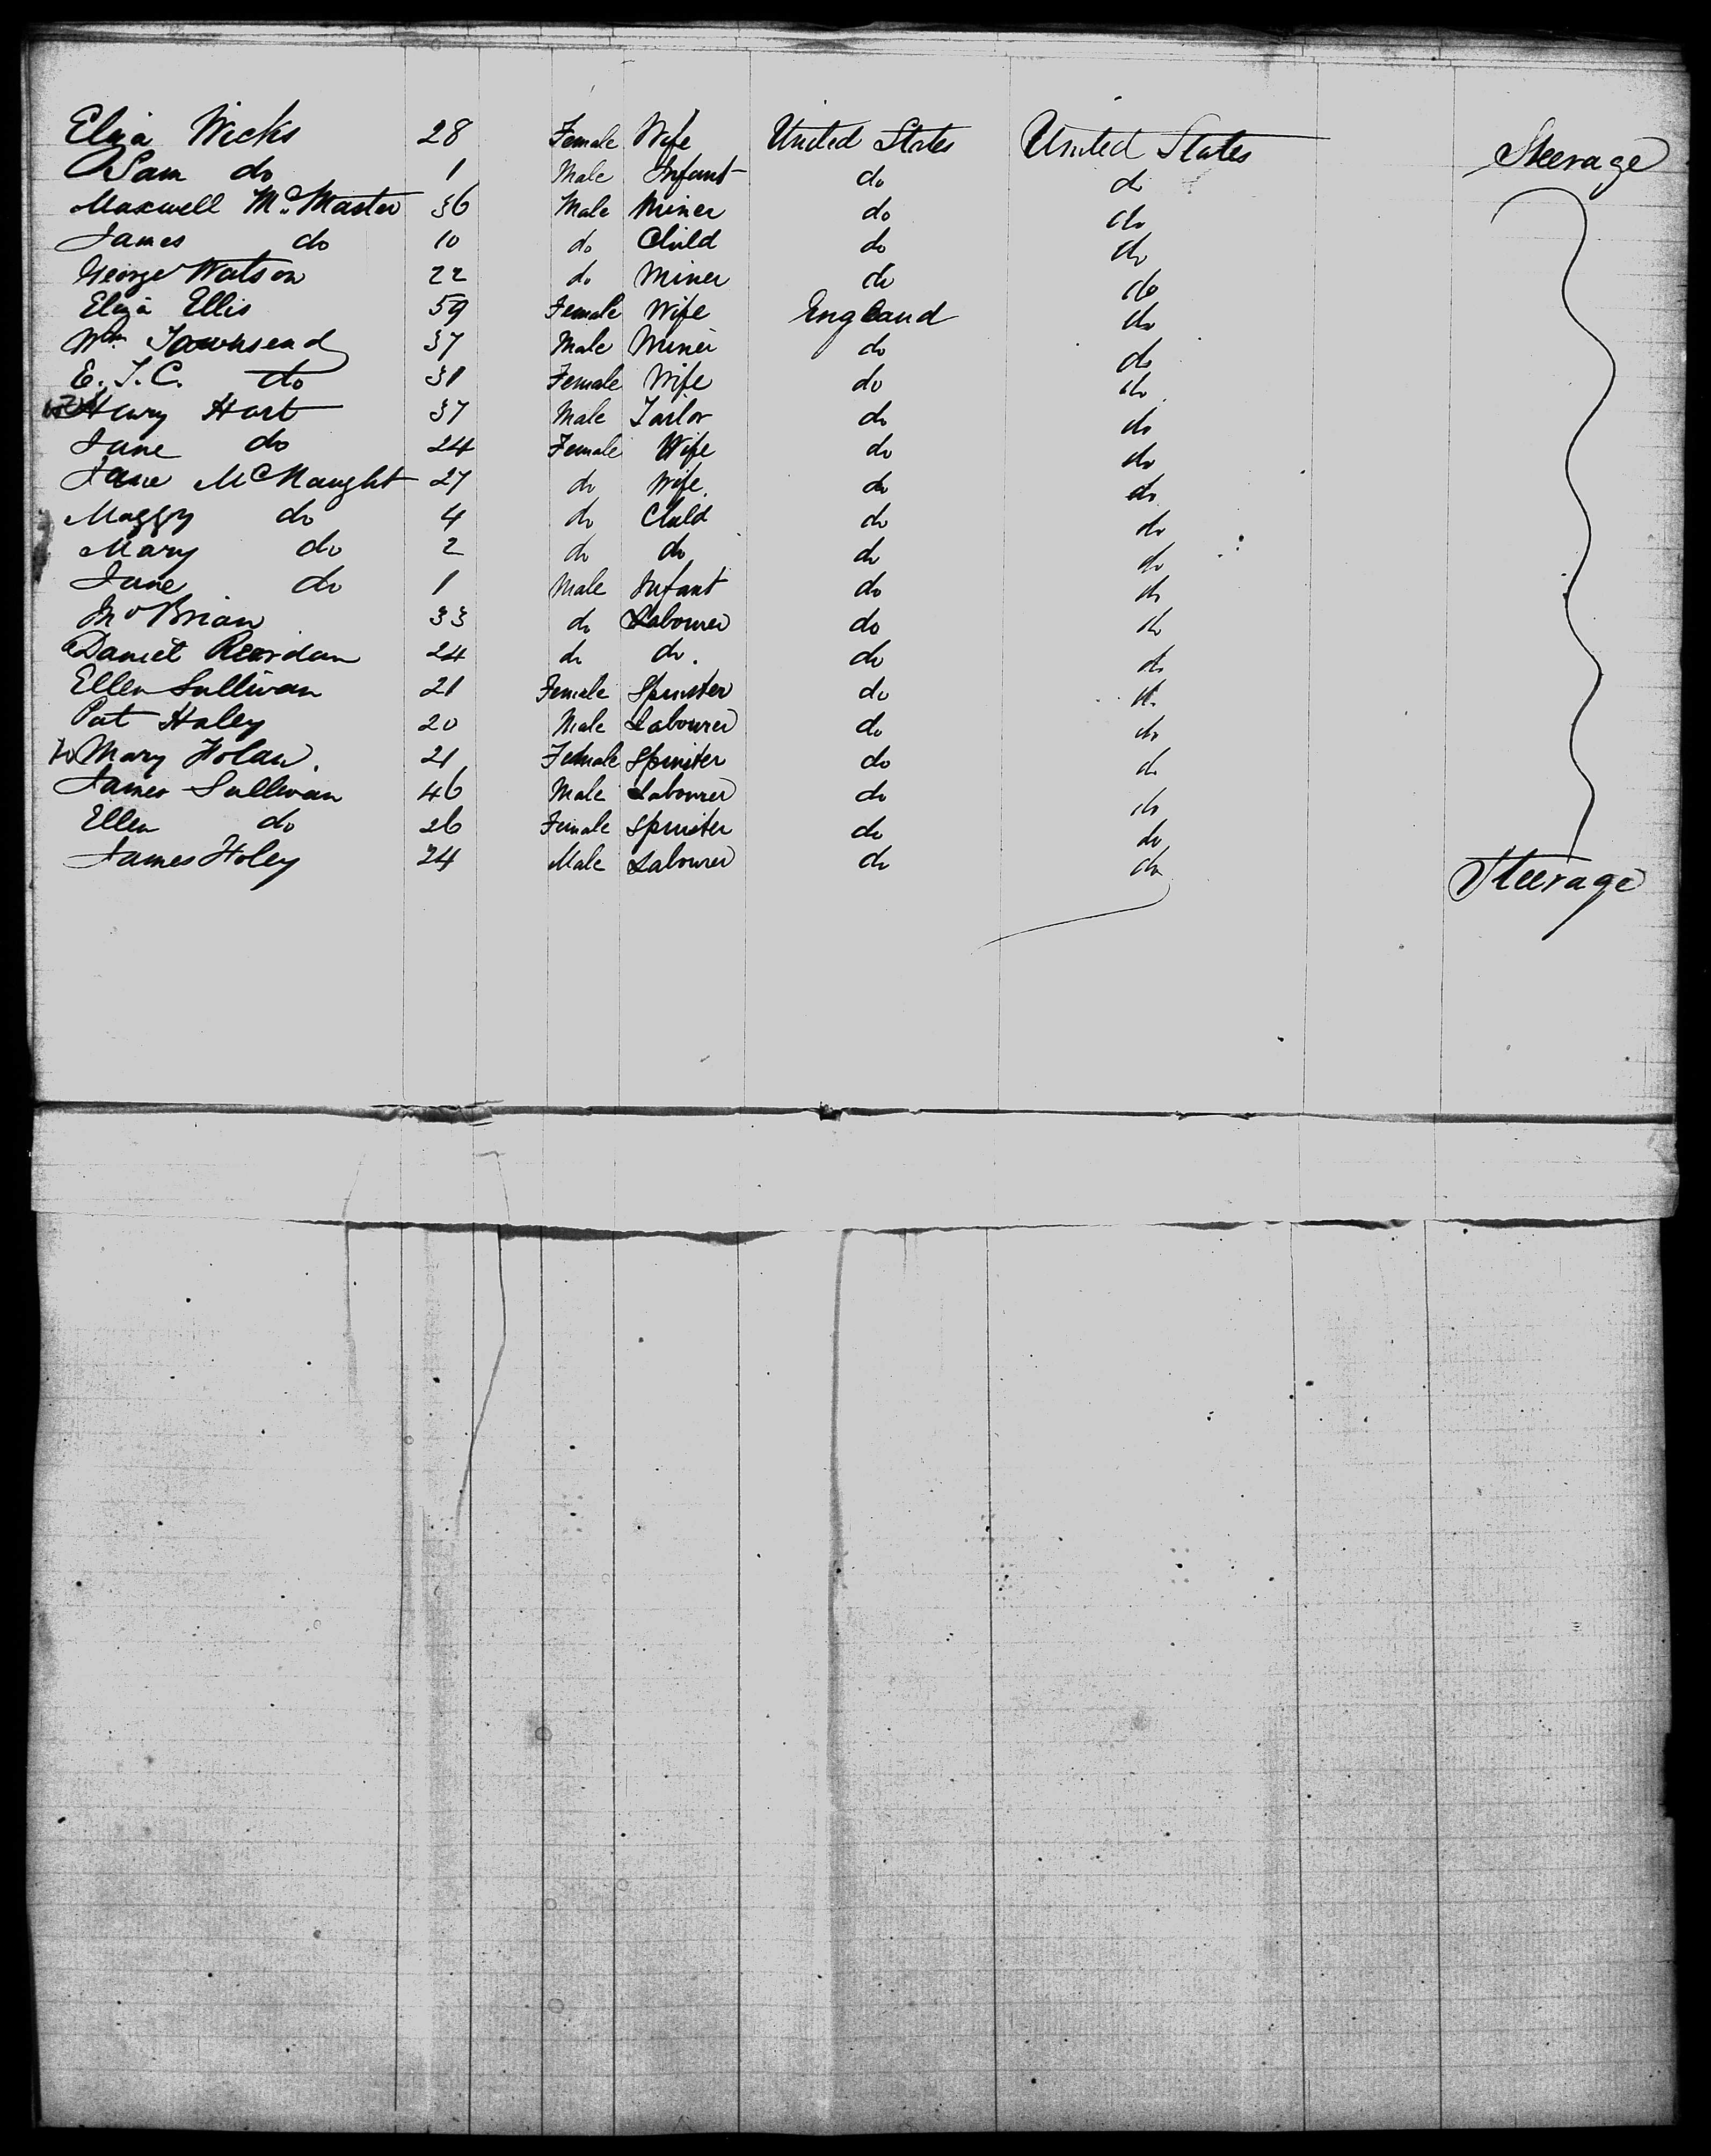 Eliza Wicks 28 Female Wife United States United States Steerage
Sam do 1 Male Infant do do
Maxwell McMaster 36 Male Miner do do
James do 10 do Child do do
George Watson 22 do Miner do do
Eliza Ellis 59 Female Wife England do
Wm Townsend 37 Male Miner do do
E. T. C. do 31 Female Wife do do
Henry Hart 37 Male Tailor do do
Jane do 24 Female Wife do do
Jane McNaught 27 do Wife do do
Maggy do 4 do Child do do
Mary do 2 do do do do
Jane do 1 Male Infant do do
Brian 33 do Labourer do do
Daniel Reardan 24 do do. do do
Ellen Sullivan 21 Female Spinster do do
Pat Haley 20 Male Labourer do do
Mary Holan. 21 Female Spinster do do
James Sullivan 46 Male Labourer do do
Ellen do 26 Female Spinster do do
James Foley 24 Male Labourer do do Steerage